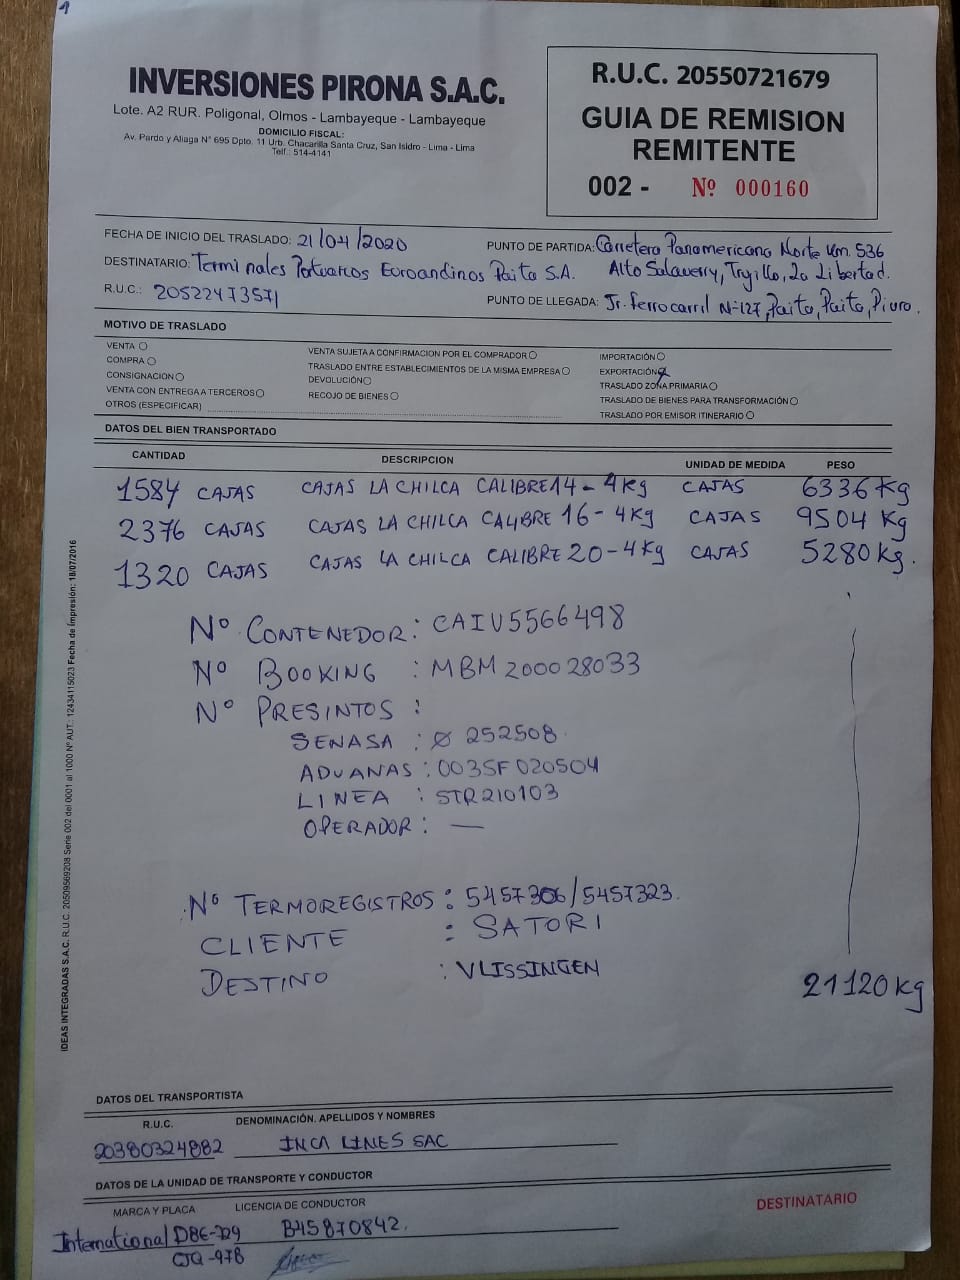 1
INVERSIONES PIRONA S.A.C.
Lote. A2 RUR. Poligonal, Olmos - Lambayeque - Lambayeque
DOMICILIO FISCAL:
Av. Pardo y Aliaga N° 695 Dpto. 11 Urb. Chacarilla Santa Cruz, San Isidro - Lima - Lima
Telf.: 514-4141
R.U.C. 20550721679
GUIA DE REMISION
REMITENTE
002 - Nº 000160
FECHA DE INICIO DEL TRASLADO: 21/04/2020
PUNTO DE PARTIDA: Carretera Panamericana Norte Km. 536
Alto Salaverry, Trujillo, La Libertad.
DESTINATARIO: Terminales Portuarios Euroandinos Paita S.A.
R.U.C.: 20522473571
PUNTO DE LLEGADA: Jr. Ferrocarril N-127, Paita, Paita, Piura.
MOTIVO DE TRASLADO
VENTA
COMPRA
CONSIGNACION
VENTA CON ENTREGA A TERCEROS
OTROS (ESPECIFICAR)
VENTA SUJETA A CONFIRMACION POR EL COMPRADOR
TRASLADO ENTRE ESTABLECIMIENTOS DE LA MISMA EMPRESA
DEVOLUCIÓN
RECOJO DE BIENES
IMPORTACIÓN
EXPORTACIÓN X
TRASLADO ZONA PRIMARIA
TRASLADO DE BIENES PARA TRANSFORMACIÓN
TRASLADO POR EMISOR ITINERARIO
DATOS DEL BIEN TRANSPORTADO
CANTIDAD DESCRIPCION UNIDAD DE MEDIDA PESO
1584 CAJAS CAJAS LA CHILCA CALIBRE 14 - 4kg CAJAS 6336 Kg
2376 CAJAS CAJAS LA CHILCA CALIBRE 16 - 4kg CAJAS 9504 Kg
1320 CAJAS CAJAS LA CHILCA CALIBRE 20 - 4kg CAJAS 5280 kg.
Nº CONTENEDOR: CAIU5566498
Nº BOOKING : MBM200028033
Nº PRESINTOS :
SENASA : Ø 252508
ADUANAS : 003SF020504
LINEA : STR210103
OPERADOR : —
Nº TERMOREGISTROS : 5457306/5457323.
CLIENTE : SATORI
DESTINO : VLISSINGEN
21120 kg
IDEAS INTEGRADAS S.A.C. R.U.C. 20509569208 Serie 002 del 0001 al 1000 Nº AUT.: 12434115023 Fecha de Impresión: 18/07/2016
DATOS DEL TRANSPORTISTA
R.U.C. DENOMINACIÓN. APELLIDOS Y NOMBRES
20380324882 INCA LINES SAC
DATOS DE LA UNIDAD DE TRANSPORTE Y CONDUCTOR
MARCA Y PLACA LICENCIA DE CONDUCTOR
DESTINATARIO
International B45870842.